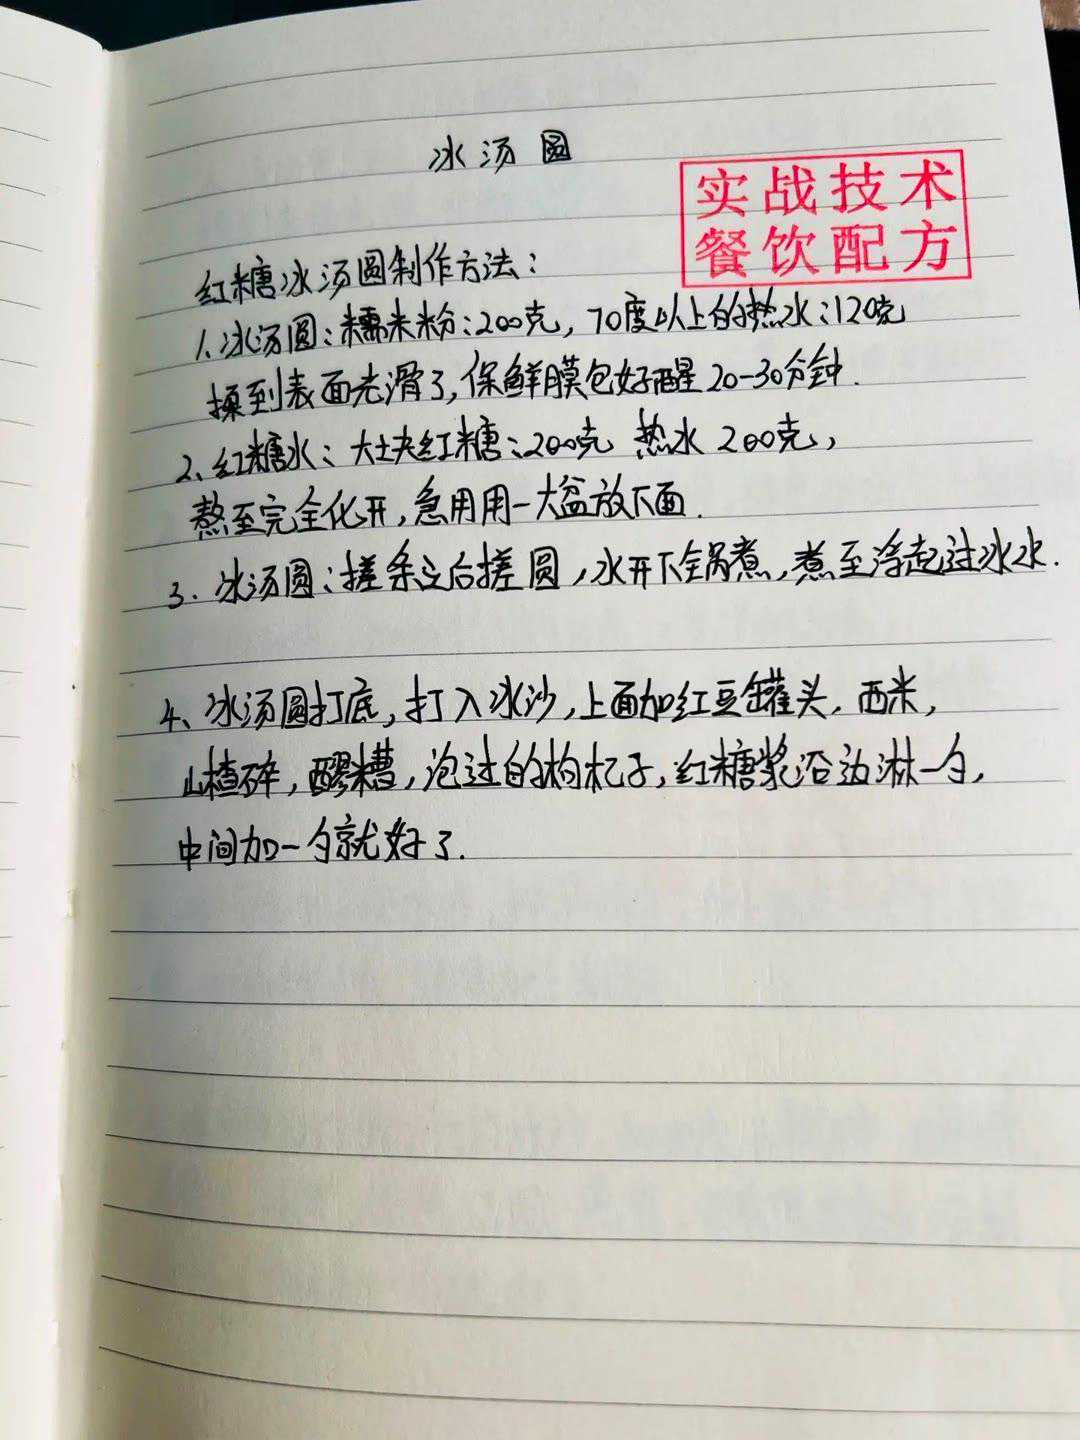 冰汤圆
实战技术
餐饮配方
红糖冰汤圆制作方法：
1、冰汤圆：糯米粉：200克，70度以上的热水：120克
揉到表面光滑了，保鲜膜包好醒20-30分钟.
2、红糖水：大块红糖：200克 热水 200克，
熬至完全化开，急用用一大盆放下面.
3. 冰汤圆：搓条之后搓圆，水开下锅煮，煮至浮起过冰水.
4、冰汤圆打底，打入冰沙，上面加红豆罐头，西米，
山楂碎，醪糟，泡过的枸杞子，红糖浆沿边淋一勺，
中间加一勺就好了.